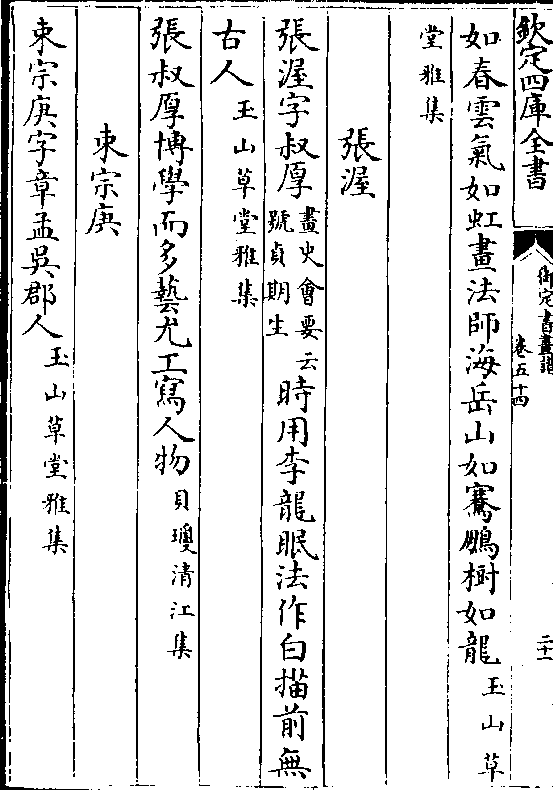 欽定四庫全書
御定書畫譜
卷五十四
二十一
如春雲氣如虹畫法師海岳山如騫鵬樹如龍玉山草
堂雅集
張渥
張渥字叔厚畫史會要云號貞期生時用李龍眠法作白描前無
古人玉山草堂雅集
張叔厚博學而多藝尤工寫人物貝瓊清江集
束宗庚
束宗庚字章孟吳郡人玉山草堂雅集